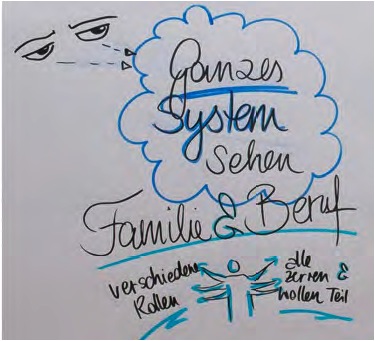 Ganzes
System
sehen
Familie & Beruf
verschiedene
Rollen
alle
zerren &
wollen Teil